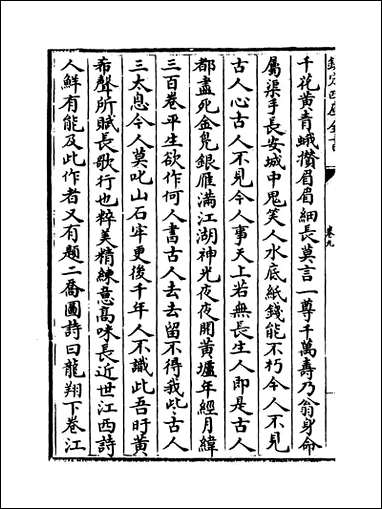 欽定四庫全書
卷九
千花黃青蛾攢眉眉細長莫言一尊千萬壽乃翁身命
屬渠手長安城中鬼笑人水底紙錢能不朽今人不見
古人心古人不見今人事天上若無長生人即是古人
都盡死金鳧銀雁滿江湖神光夜夜開黃壚年經月緯
三百卷平生欲作何人書古人去去留不得我此古人
三太息今人莫叱山石牢更後千年人不識此吾盱黃
希聲所賦長歌行也粹美精練意高味長近世江西詩
人鮮有能及此作者又有題二喬圖詩曰龍翔下卷江